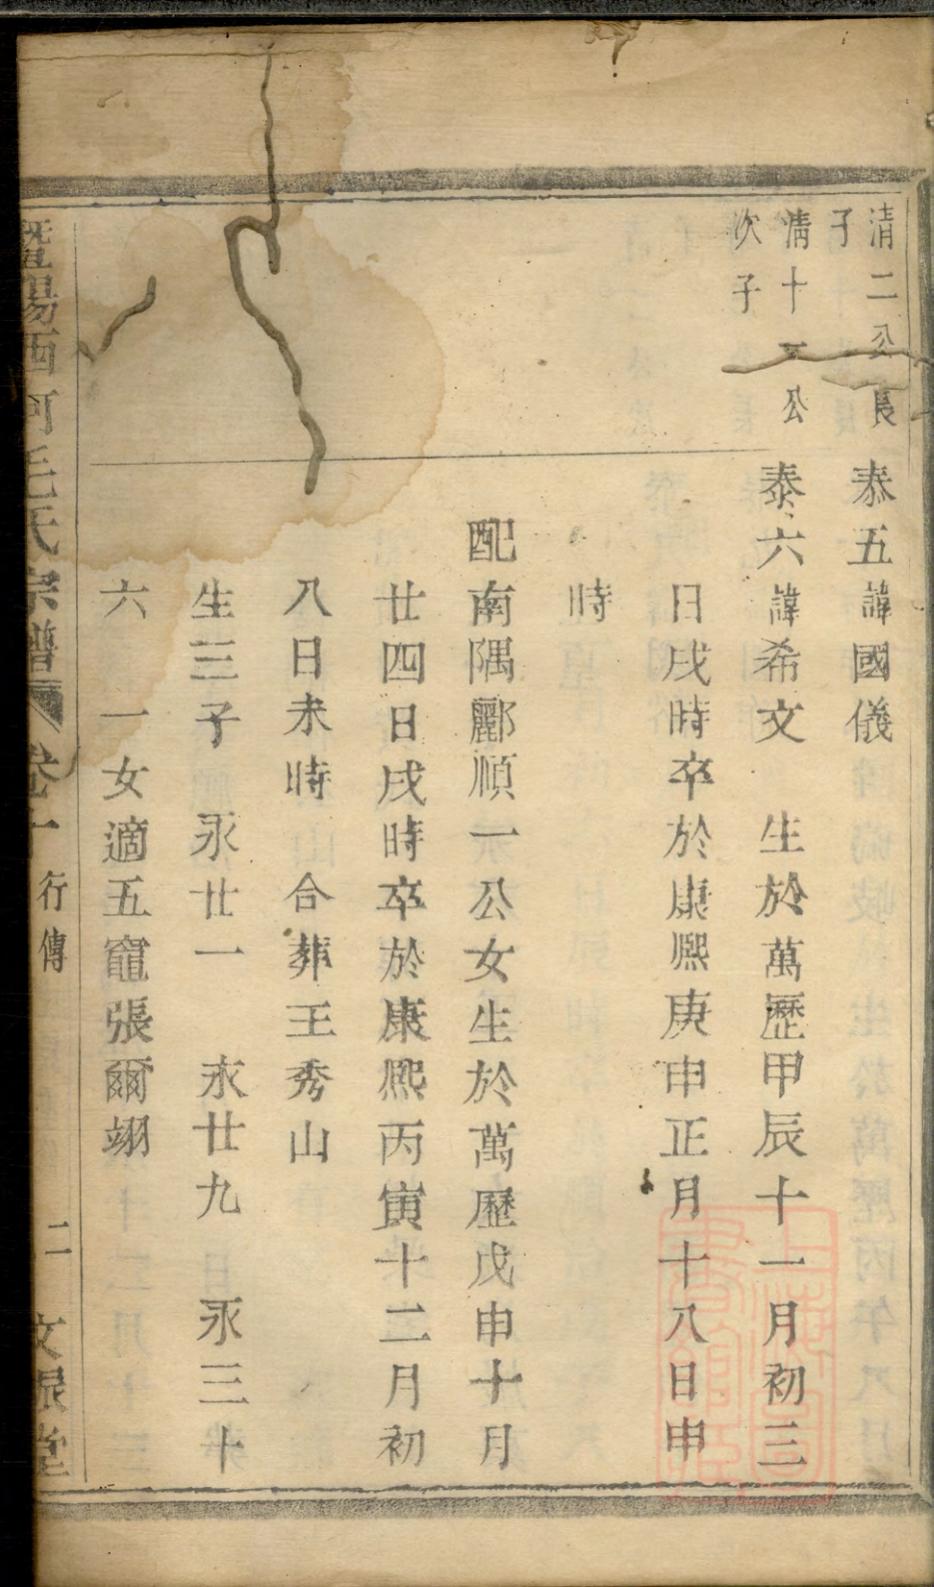 清二公長
子
泰五諱國儀
清十一公
次子
泰六諱希文 生於萬歷甲辰十一月初三
日戌時卒於康熈庚申正月十八日申
時
配南隅酈順一公女生於萬歷戊申十月
廿四日戌時卒於康熈丙寅十二月初
八日未時 合葬王秀山
生三子 永廿一 永廿九 永三十
六 一女適五竈張爾翊
暨陽西河毛氏宗譜 卷十 行傳 二 文晛堂